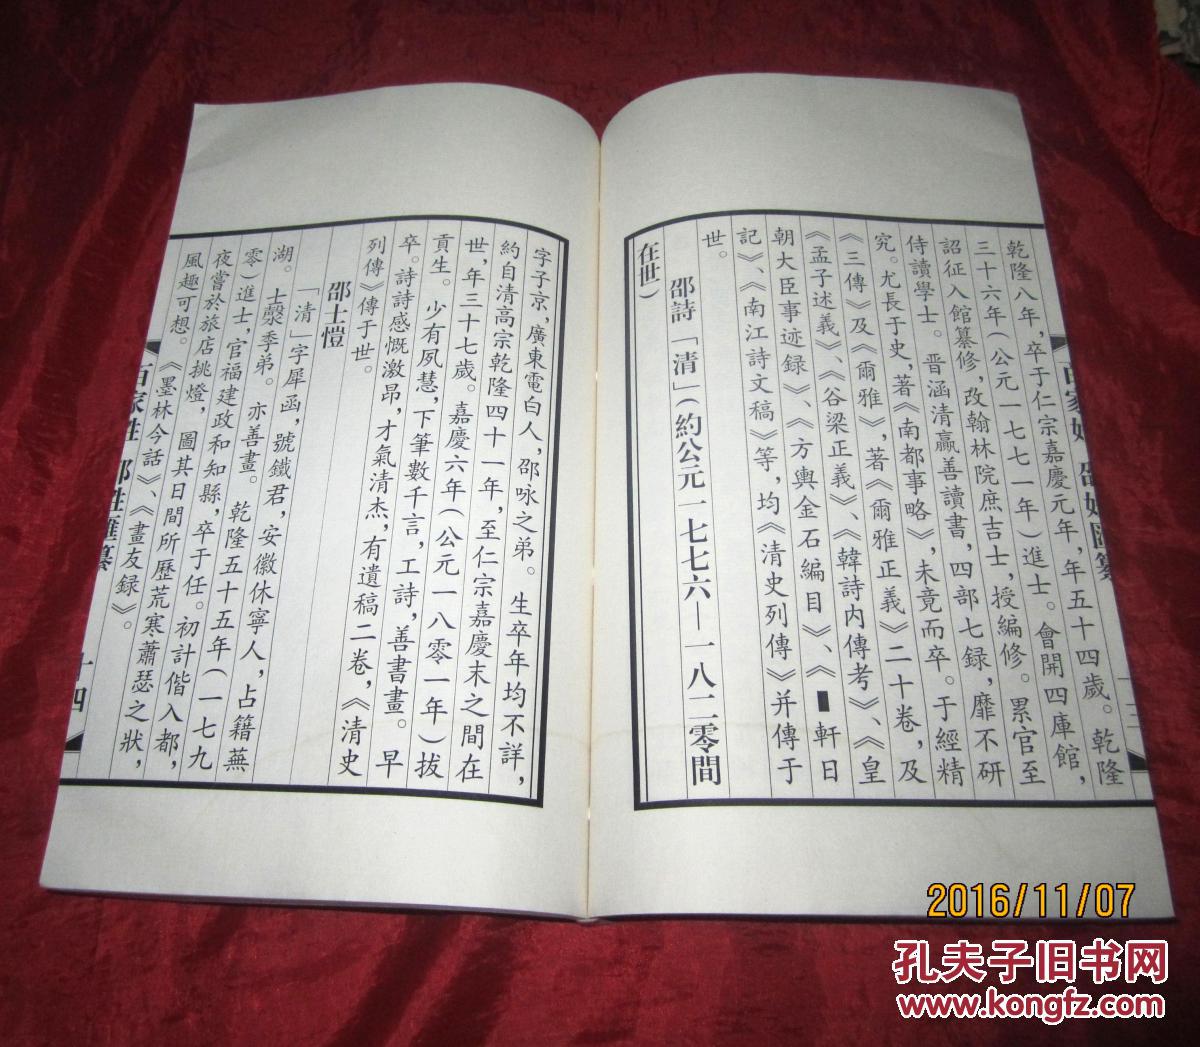 乾隆八年，卒于仁宗嘉慶元年，年五十四歲。乾隆
三十六年（公元一七七一年）進士。會開四庫館，
詔征入館纂修，改翰林院庶吉士，授編修。累官至
侍讀學士。晋涵清羸善讀書，四部七録，靡不研
究。尤長于史，著《南都事略》，未竟而卒。于經精
《三傳》及《爾雅》，著《爾雅正義》二十卷，及
《孟子述義》、《谷梁正義》、《韓詩内傳考》、《皇
朝大臣事迹録》、《方輿金石編目》、《▮軒日
記》、《南江詩文稿》等，均《清史列傳》并傳于
世。
邵詩「清」（約公元一七七六—一八二零間
在世）
字子京，廣東電白人，邵咏之弟。生卒年均不詳，
約自清高宗乾隆四十一年，至仁宗嘉慶末之間在
世，年三十七歲。嘉慶六年（公元一八零一年）拔
貢生。少有夙慧，下筆數千言，工詩，善書畫。早
卒。詩詩感慨激昂，才氣清杰，有遺稿二卷，《清史
列傳》傳于世。
邵士愷
「清」字犀函，號鐵君，安徽休寧人，占籍蕪
湖。士燮季弟。亦善畫。乾隆五十五年（一七九
零）進士，官福建政和知縣，卒于任。初計偕入都，
夜嘗於旅店挑燈，圖其日間所歷荒寒蕭瑟之狀，
風趣可想。《墨林今話》、《畫友録》。
百家姓 邵姓匯纂
十四
2016/11/07
孔夫子旧书网
www.kongfz.com